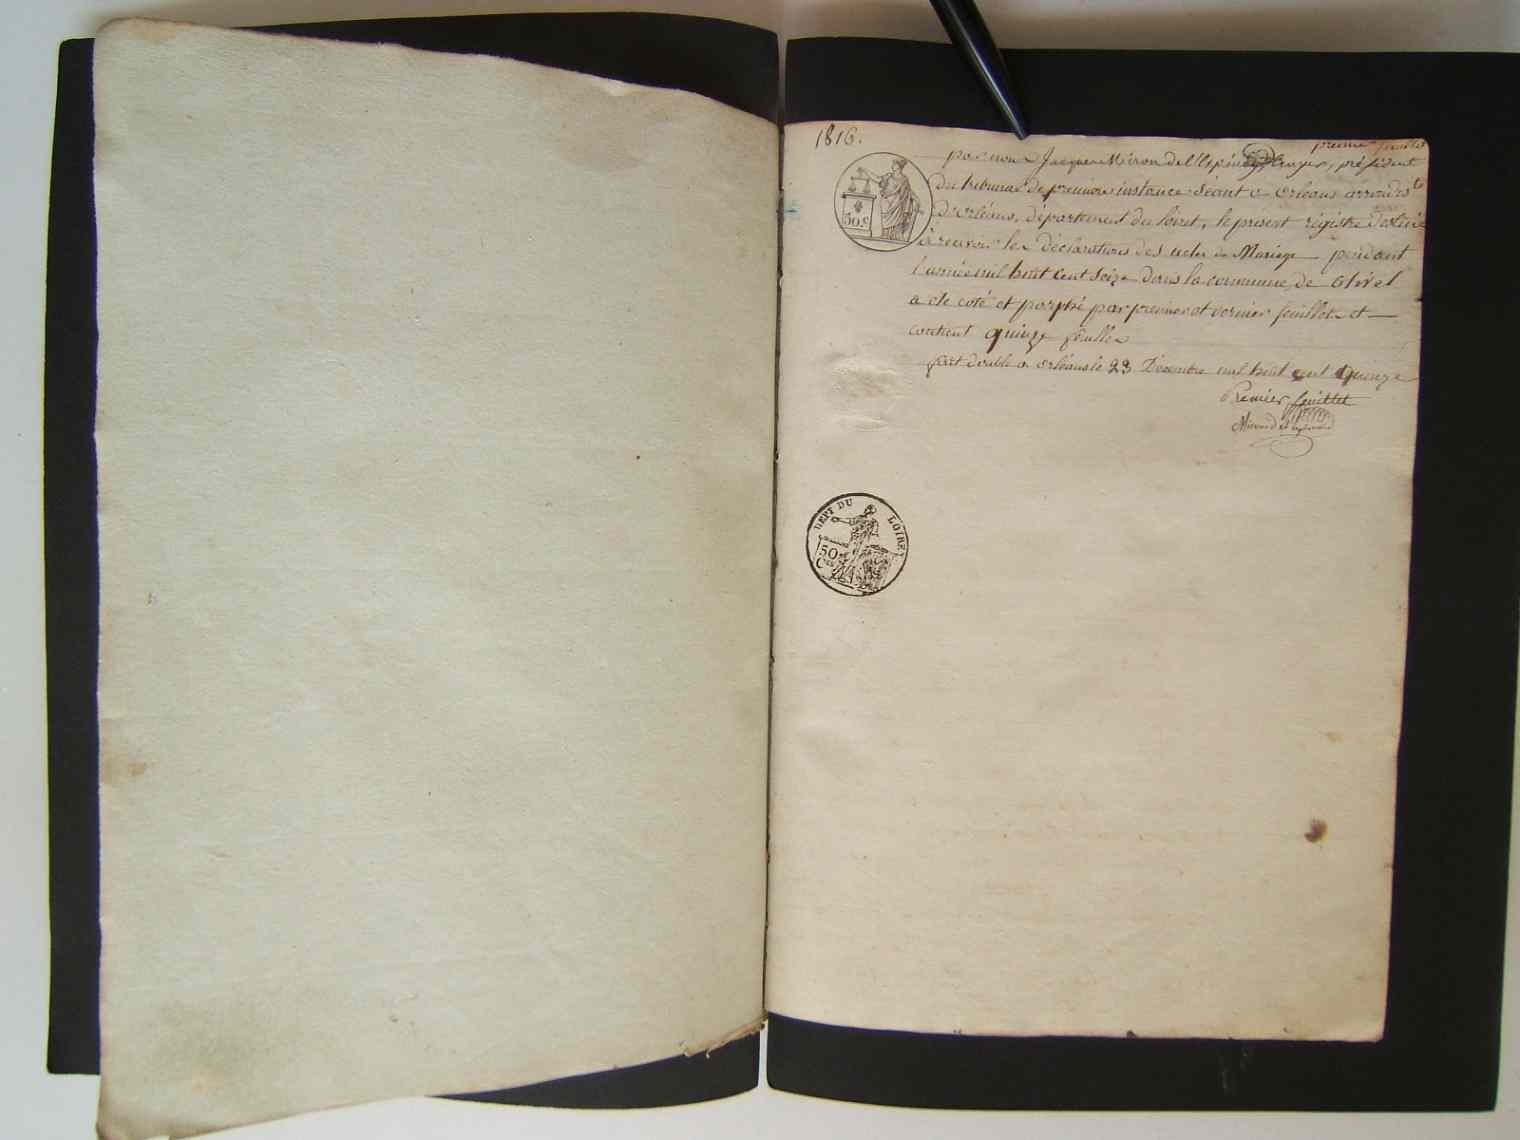 1816.
premier feuillet
par nous Jacques Miron de l'Espinay, Ecuyer, président
du tribunal de première instance séant a orleans arrondist
D'orléans, département du loiret, le présent régistre destiné
à recevoir les déclarations des actes de Mariage pendant
l'année mil huit cent seize dans la commune de olivet
a ete coté et paraphé par premier et dernier feuillet et
contient quinze feuilles
fait double a orléans le 23 Décembre mil huit cent quinze
Premier feuillet
Miron de l'Espinay
50.c
DEPT DU LOIRET
50
Ces